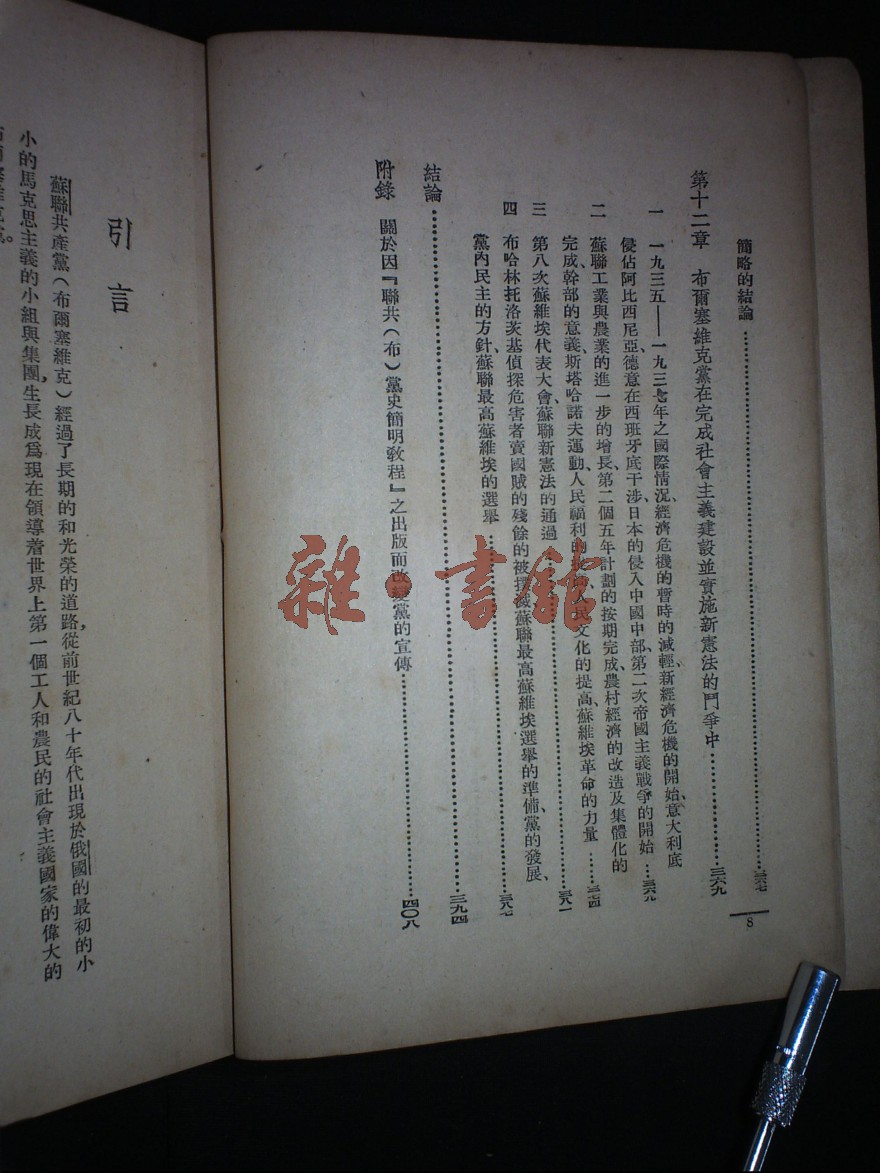 簡略的結論……三六七
第十二章 布爾塞維克黨在完成社會主義建設並實施新憲法的鬥爭中……三六九
一 一九三五——一九三七年之國際情況、經濟危機的暫時的減輕、新經濟危機的開始、意大利底
侵佔阿比西尼亞、德意在西班牙底干涉、日本的侵入中國中部、第二次帝國主義戰爭的開始……三六九
二 蘇聯工業與農業的進一步的增長、第二個五年計劃的按期完成、農村經濟的改造及集體化的
完成、幹部的意義、斯塔哈諾夫運動、人民福利的 人民文化的提高、蘇維埃革命的力量……三七四
三 第八次蘇維埃代表大會、蘇聯新憲法的通過……三八一
四 布哈林托洛茨基偵探危害者賣國賊的殘餘的被撲滅、蘇聯最高蘇維埃選舉的準備、黨的發展、
黨內民主的方針、蘇聯最高蘇維埃的選舉……三八七
結論……三九四
附錄 關於因『聯共(布)黨史簡明教程』之出版而改變黨的宣傳……四〇八
8
雜·書館
引言
蘇聯共產黨(布爾塞維克)經過了長期的和光榮的道路,從前世紀八十年代出現於俄國的最初的小
小的馬克思主義的小組與集團,生長成爲現在領導着世界上第一個工人和農民的社會主義國家的偉大的